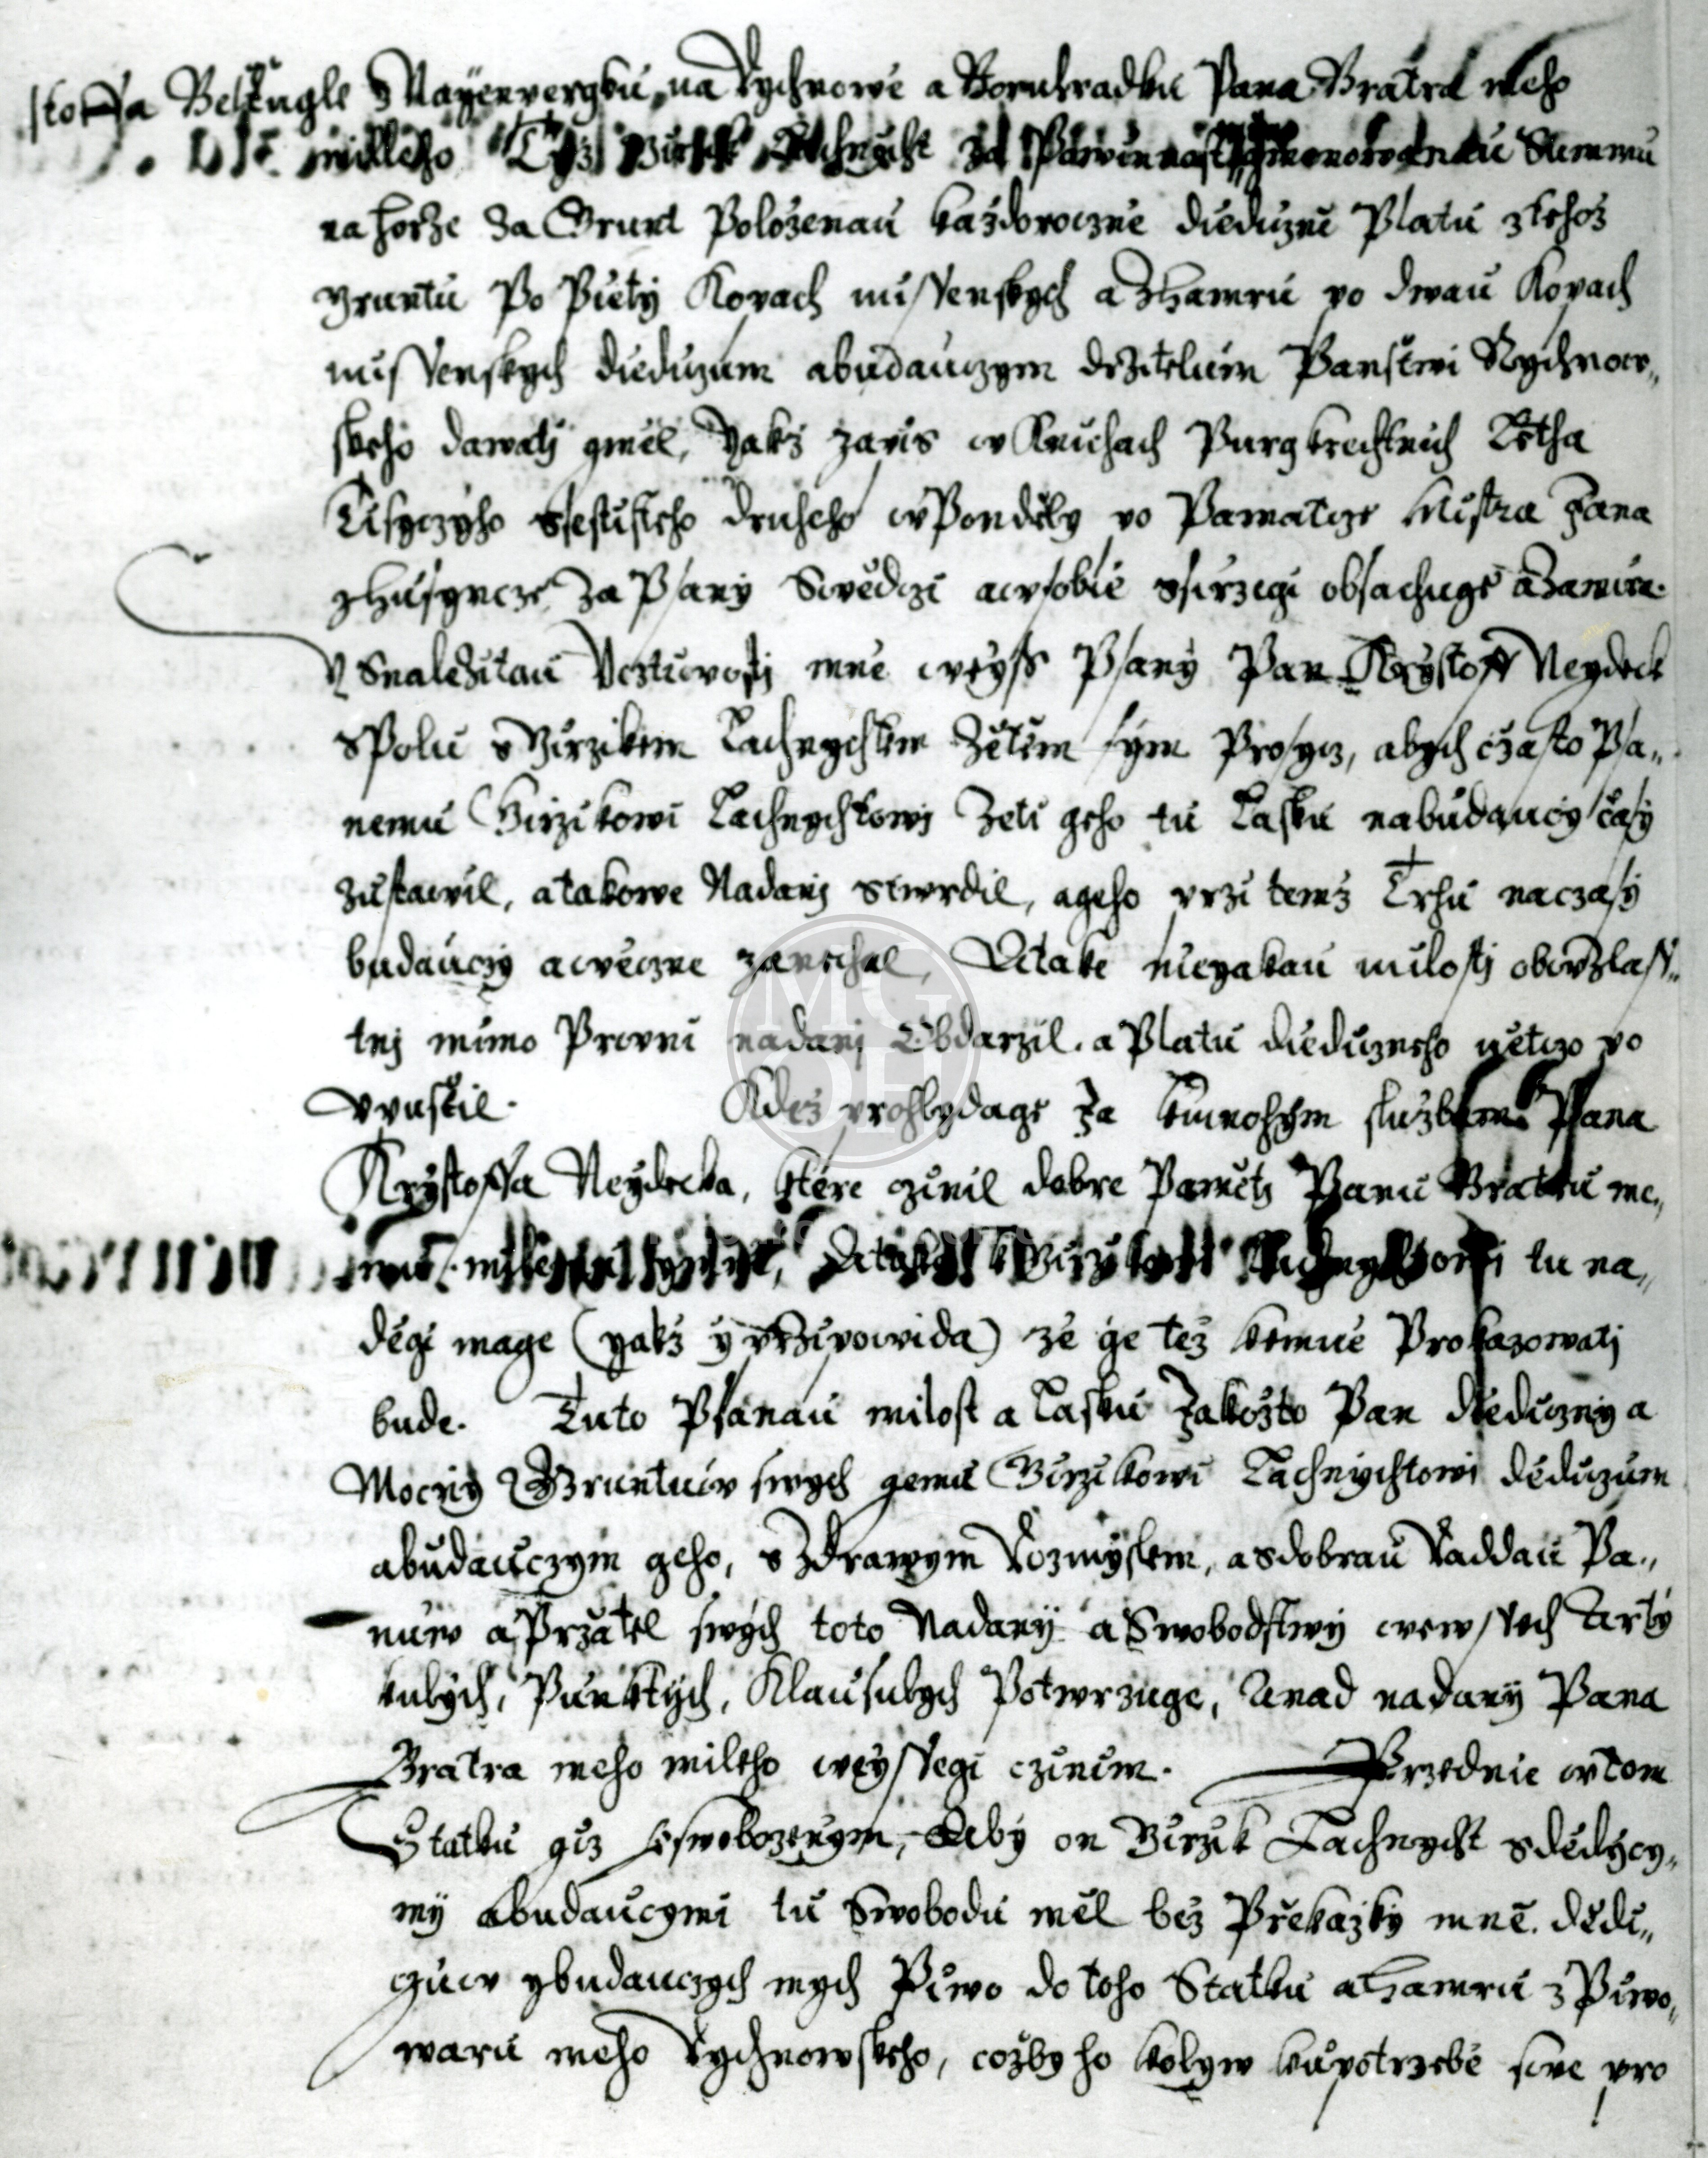 stoffa Betengle z Nayenpergku, na Rychnowe a Bornhradku Pana Bratra meho
milleho Tyz Birzik Lachnycht za Summu
na horze za Grunt Polozenau kazdoroczne diediczne Platu z tehoz
gruntu Po Piety Kopach missenskych a z Hamru po dwau Kopach
missenskych diediczum a budauczym drzitelum Panstwi Rychnow„
skeho dawatj gmel, yakz zapis w Knihach Purgkrechtnich Letha
Tisyczyho ssestisteho druheho w Pondely po Pamatcze Mistra Jana
z Husyncze Za Psany Swedczi a w sobie ssirzegi obsahuge a Zawira.
Y S nalezitau Vcztiwostj mne weyss Psany Pan Krystoff Neydeck
s Polu s Birzikem Lachnychtem Zetem sym Prosycz, abych czasto Psa„
nemu Birzikowi Lachnychtowj Zeti geho tu Lasku na budaucy časy
zustawil, a takowe Nadanj stwrdil, a geho przi temz Trhu na czasy
budauczy a weczne zanechal, A take niegakau milostj obwzlass„
tnj mimo Prwni nadanj Obdarzil. a Platu diediczneho nětczo po
vpustil. Kdez prohlydage Za k mnohym sluzbam Pana
Krystoffa Neydecka, ktere czinil dobre Pameti Panu Bratru me„
mu tu na„
dègi mage (yakz y przipowida) ze ge tez ke mne Prokazowatj
bude. Tuto Psanau milost a Lasku Jakozto Pan diediczny a
Mocny Gruntuw swych gemu Birzikowi Lachnychtowi dediczum
a budauczym geho, s Zdrawym Rozmyslem, a s dobrau Raddau Pa„
nuw a Przatel swych toto Nadany a Swobodstwy we wssech Arty
kulych, Punktych, Klausulych Potwrzuge, A nad nadany Pana
Bratra meho mileho weyssegi czinim. Przednie w tom
Statku giz Oswobozenym, Aby on Birzik Lachnycht s dedycy„
my a budaucymi tu Swobodu měl bez Překazky mně. dědi„
czuw y budauczych mych Piwo do toho Statku a Hamru z Piwo„
waru meho Rychnowskeho, cozby ho kolyw ku potrzebě swe pro